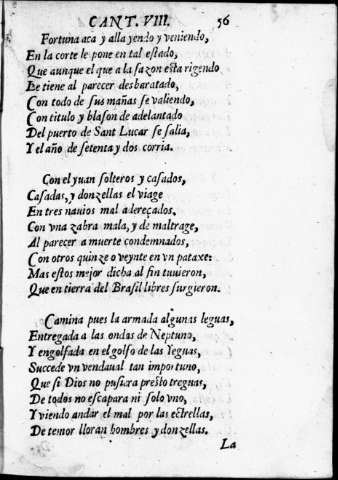 CANT. VIII. 56
Fortuna aca y alla yendo y veniendo,
En la corte le pone en tal estado,
Que aunque el que a la sazon esta rigendo
Le tiene al parecer desbaratado,
Con todo de sus mañas se valiendo,
Con titulo y blason de adelantado
Del puerto de Sant Lucar se salia,
Y el año de setenta y dos corria.
Con el yuan solteros y casados,
Casadas, y donzellas el viage
En tres nauios mal adereçados.
Con vna zabra mala, y de maltrage,
Al parecer a muerte condemnados,
Con otros quinze o veynte en vn pataxe:
Mas estos mejor dicha al fin tuuieron,
Que en tierra del Brasil libres surgieron.
Camina pues la armada algunas leguas,
Entregada a las ondas de Neptuno,
Y engolfada en el golfo de las Yeguas,
Succede vn vendaual tan importuno,
Que si Dios no pusiera presto treguas,
De todos no escapara ni solo vno,
Y viendo andar el mal por las estrellas,
De temor lloran hombres y donzellas.
La